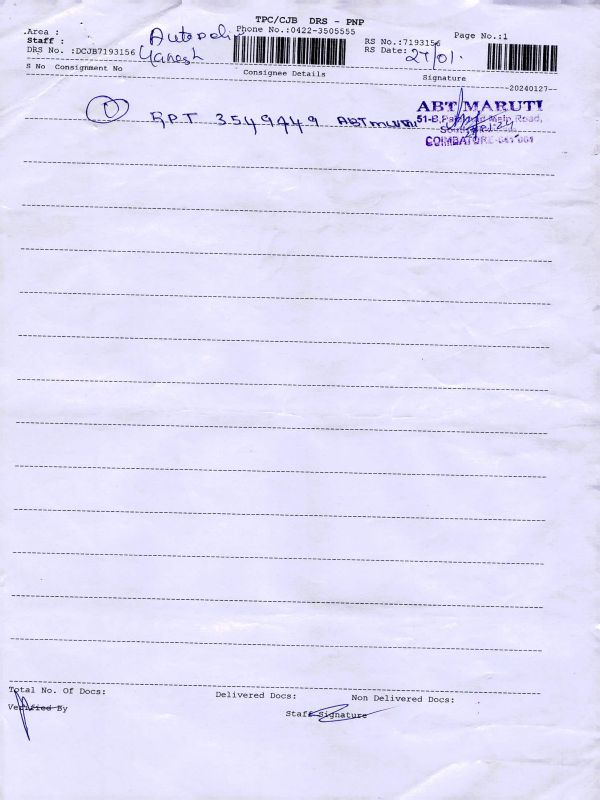 TPC/CJB DRS - PNP
Area : Phone No.:0422-3505555 Page No.:1
Staff : Ganesh RS No.:7193156
DRS No. :DCJB7193156 RS Date: 27/01
S No Consignment No Consignee Details Signature
--20240127--
ABT MARUTI
1 SPT 3549449 ABT maruti 51-B, Main Road,
COIMBATORE-641 001
Total No. Of Docs: Delivered Docs: Non Delivered Docs:
Verified By Staff Signature